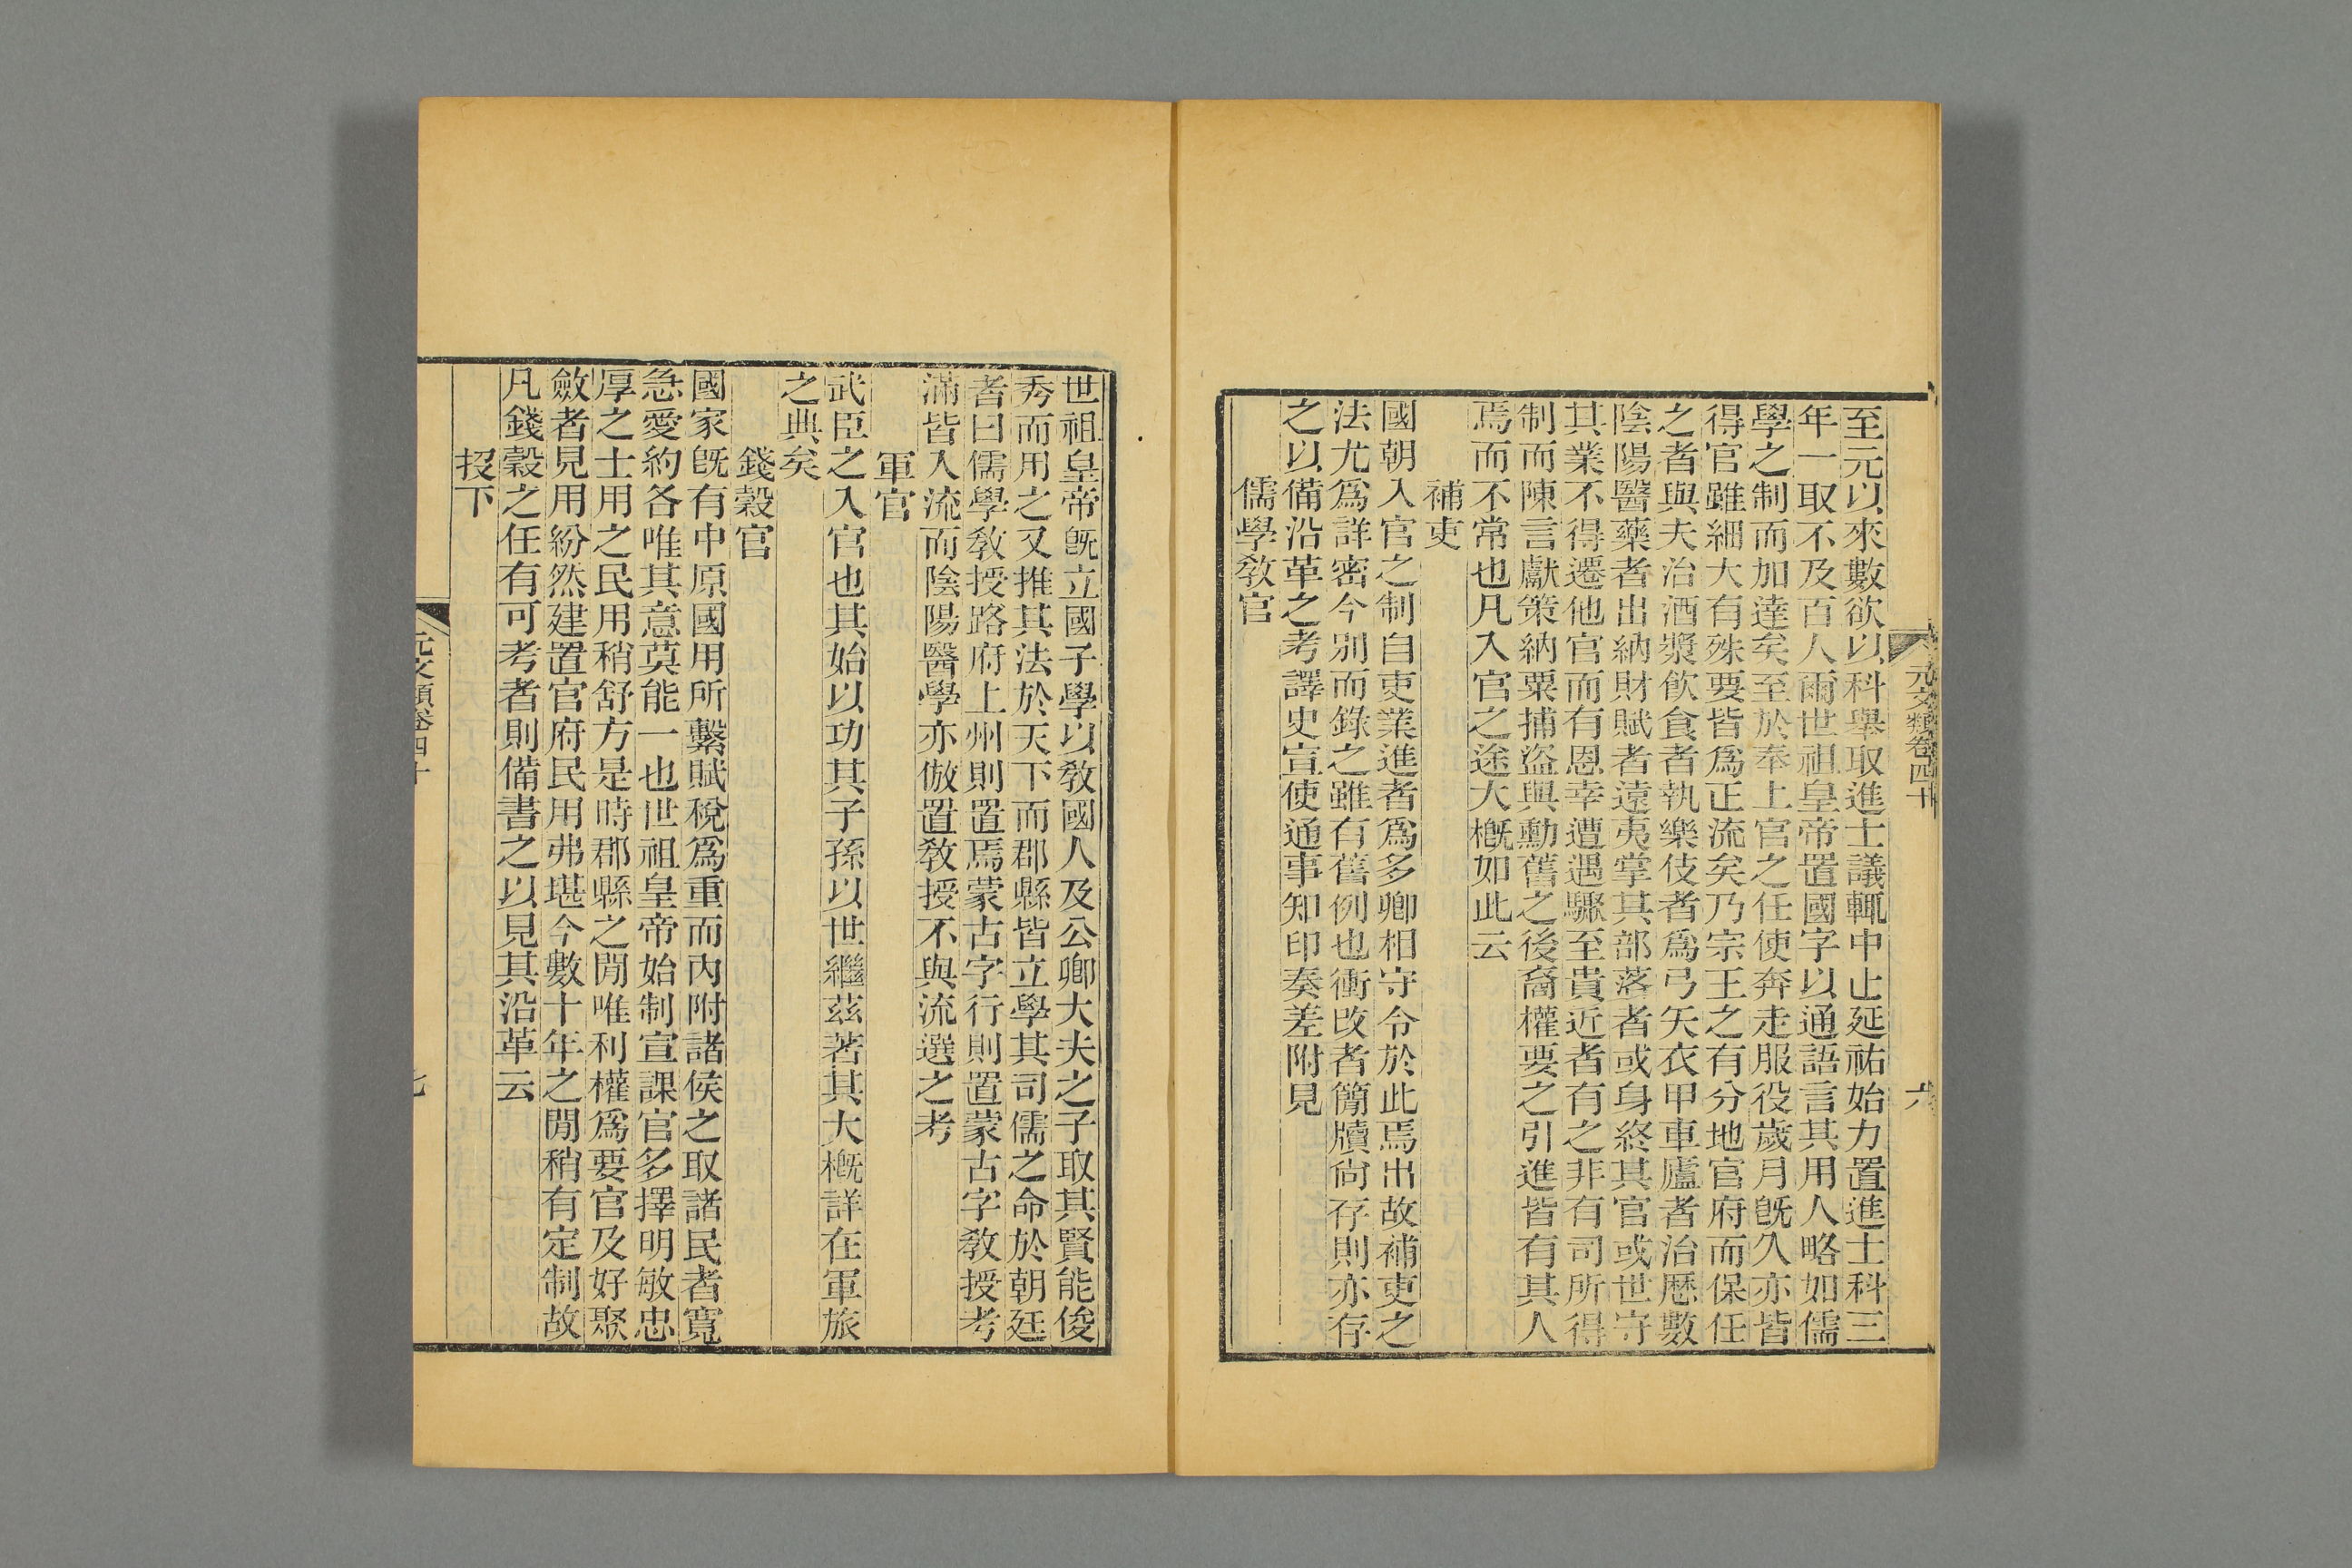 元文類卷四十
六
至元以來數欲以科舉取進士議輒中止延祐始力置進士科三
年一取不及百人爾世祖皇帝置國字以通語言其用人略如儒
學之制而加達矣至於奉上官之任使奔走服役歲月旣久亦皆
得官雖細大有殊要皆爲正流矣乃宗王之有分地官府而保任
之者與夫治酒漿飲食者執樂伎者爲弓矢衣甲車廬者治歷數
陰陽醫藥者出納財賦者遠夷掌其部落者或身終其官或世守
其業不得遷他官而有恩幸遭遇驟至貴近者有之非有司所得
制而陳言獻策納粟捕盜與勳舊之後裔權要之引進皆有其人
焉而不常也凡入官之途大槪如此云
補吏
國朝入官之制自吏業進者爲多卿相守令於此焉出故補吏之
法尤爲詳密今别而錄之雖有舊例也衝改者簡牘尙存則亦存
之以備沿革之考譯史宣使通事知印奏差附見
儒學敎官
世祖皇帝旣立國子學以敎國人及公卿大夫之子取其賢能俊
秀而用之又推其法於天下而郡縣皆立學其司儒之命於朝廷
者曰儒學敎授路府上州則置焉蒙古字行則置蒙古字敎授考
滿皆入流而陰陽醫學亦倣置敎授不與流選之考
軍官
武臣之入官也其始以功其子孫以世繼茲著其大槪詳在軍旅
之典矣
錢穀官
國家旣有中原國用所繫賦稅爲重而內附諸侯之取諸民者寬
急愛約各唯其意莫能一也世祖皇帝始制宣課官多擇明敏忠
厚之士用之民用稍舒方是時郡縣之閒唯利權爲要官及好聚
斂者見用紛然建置官府民用弗堪今數十年之閒稍有定制故
凡錢穀之任有可考者則備書之以見其沿革云
投下
元文類卷四十
七